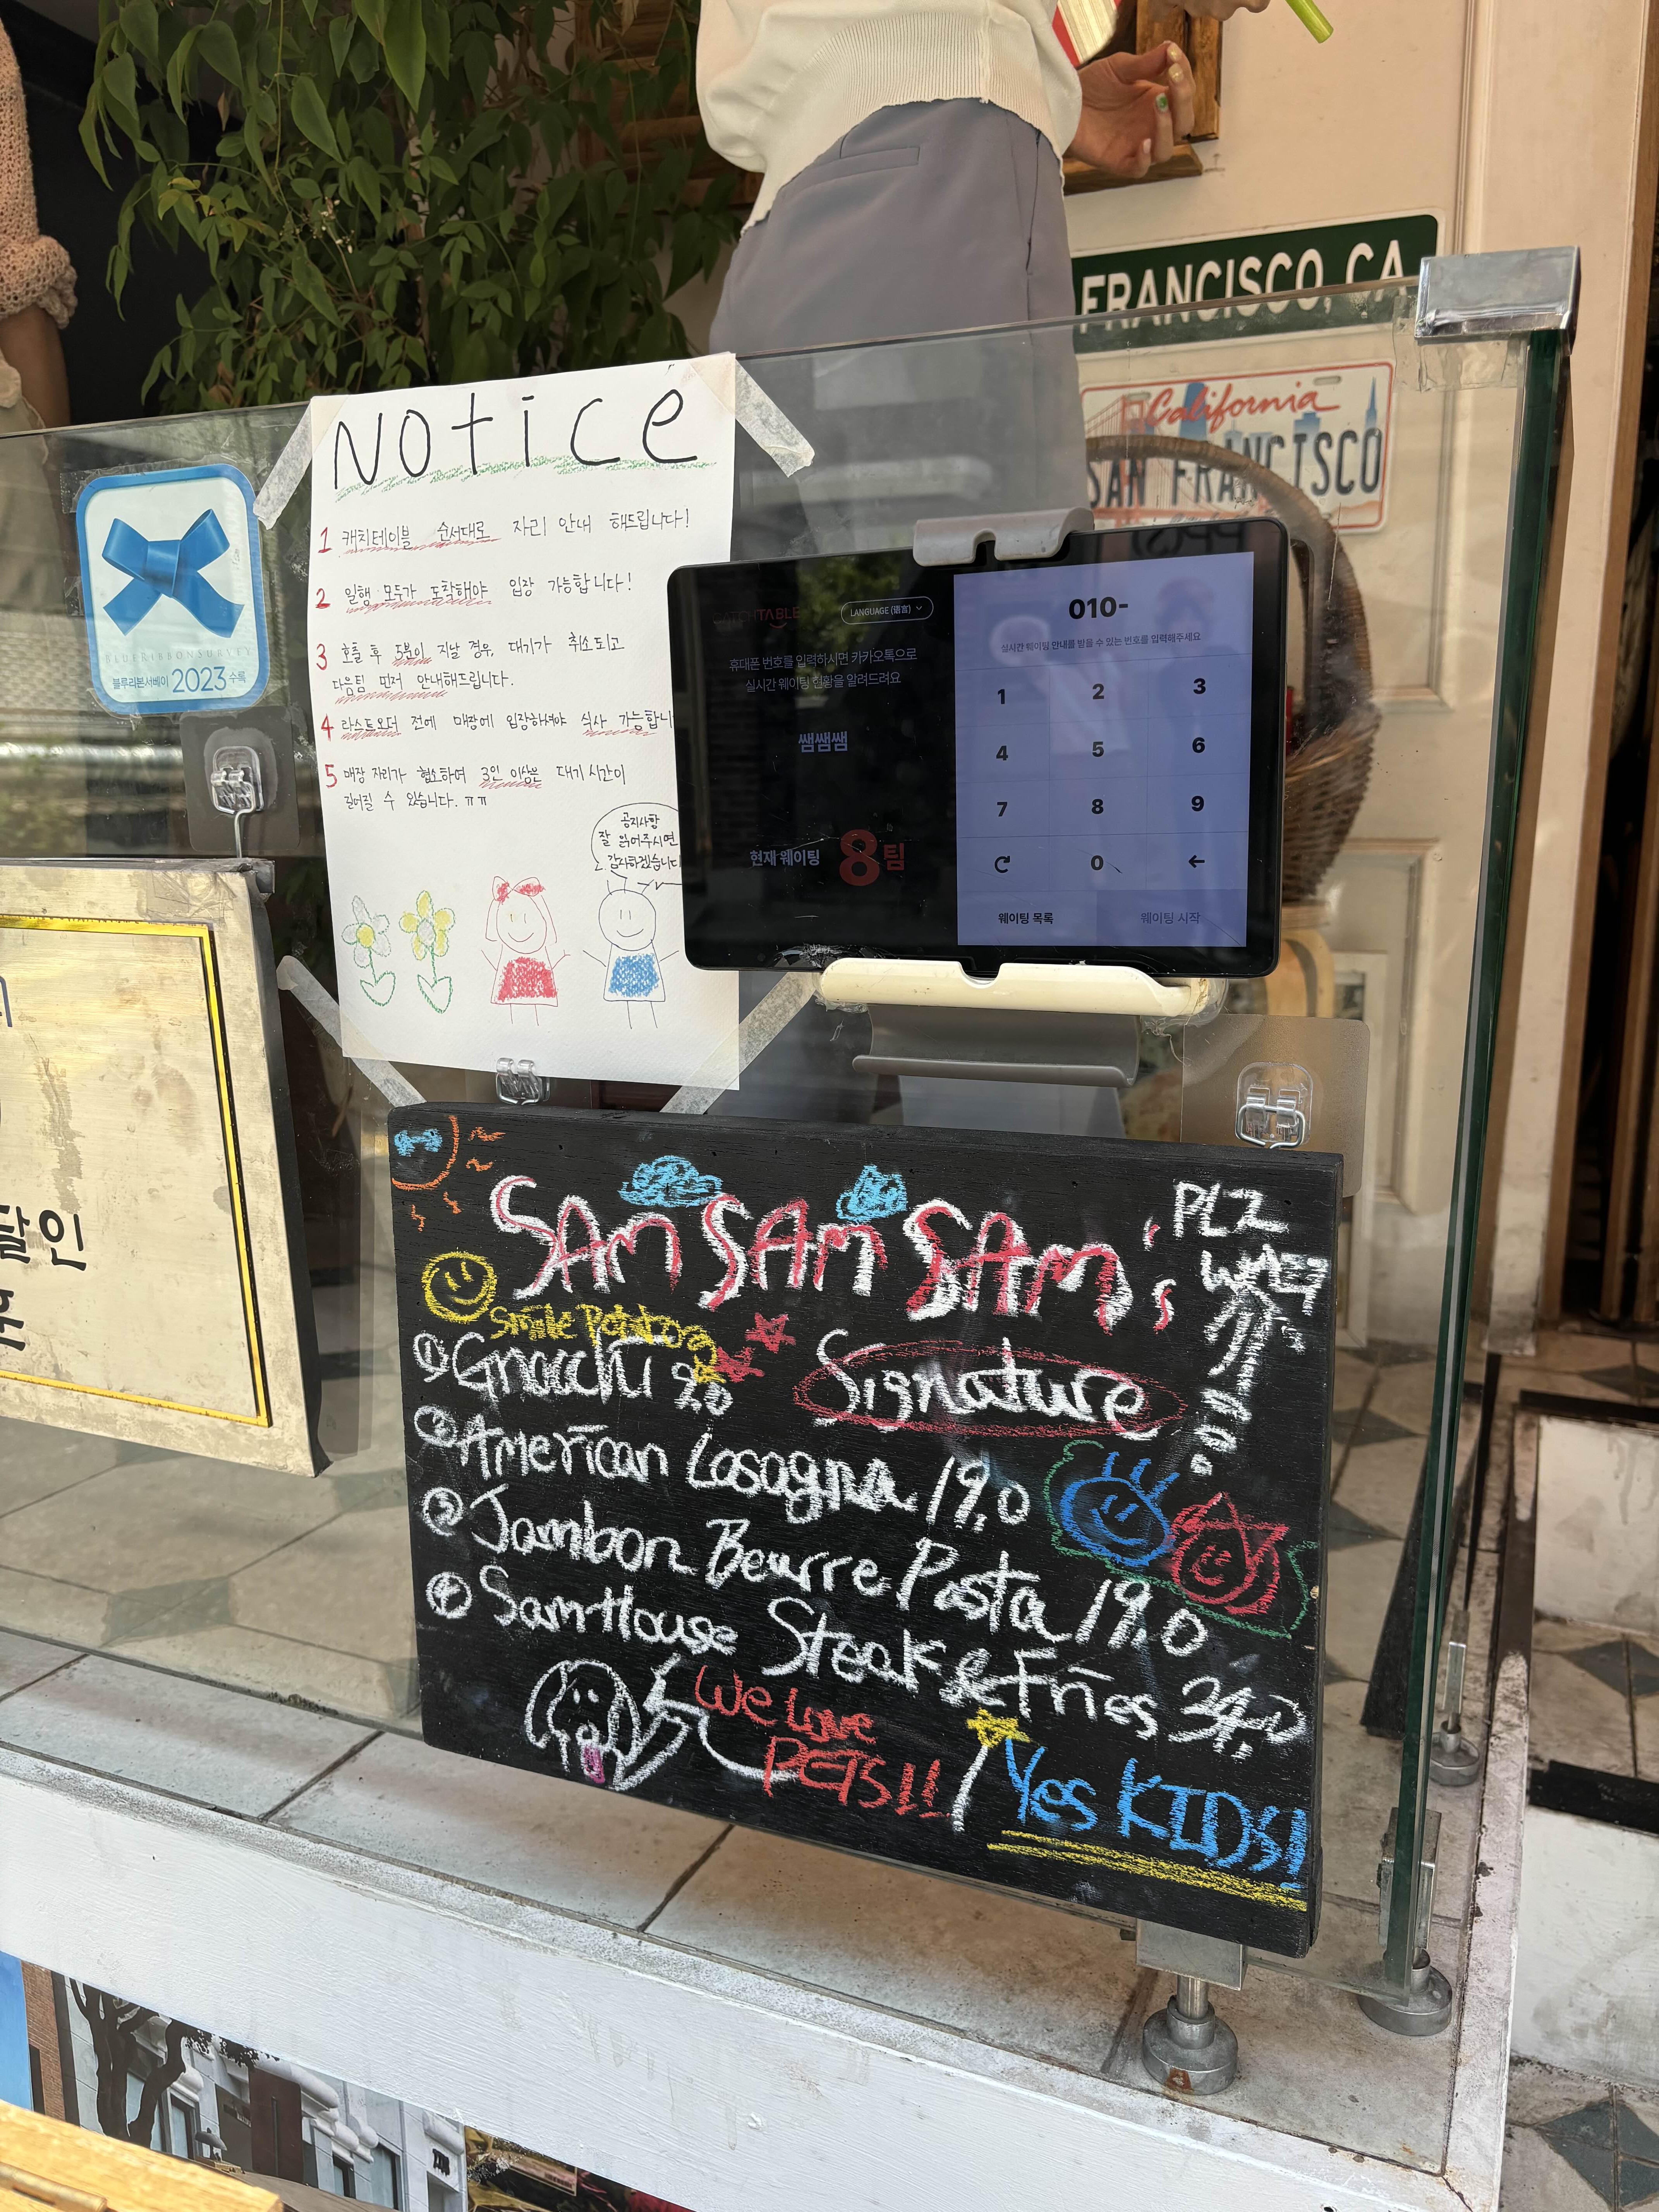 FRANCISCO, CA
California
SAN FRANCISCO
Notice
1 캐치테이블 순서대로 자리 안내 해드립니다!
2 일행 모두가 도착해야 입장 가능합니다!
3 호출 후 5분이 지날 경우, 대기가 취소되고
다음팀 먼저 안내해드립니다.
4 라스트오더 전에 매장에 입장하셔야 식사 가능합니
5 매장 자리가 협소하여 3인 이상은 대기시간이
길어질 수 있습니다. ㅠㅠ
공지사항
잘 읽어주시면
감사하겠습니다
BLUE RIBBON SURVEY
블루리본서베이 2023 수록
CATCHTABLE
LANGUAGE (语言)
휴대폰 번호를 입력하시면 카카오톡으로
실시간 웨이팅 현황을 알려드려요
쌤쌤쌤
현재 웨이팅 8팀
010-
실시간 웨이팅 안내를 받을 수 있는 번호를 입력해주세요
1 2 3
4 5 6
7 8 9
0
웨이팅 목록 웨이팅 시작
인
SAM SAM SAM's
PLZ
WAIT
Smile Potato
Signature
① Gnocchi 20
② American Lasagna 19.0
③ Jambon Beurre Pasta 19.0
④ SamHouse Steak & Fries 34.0
We Love
PETS!!
Yes KIDS!